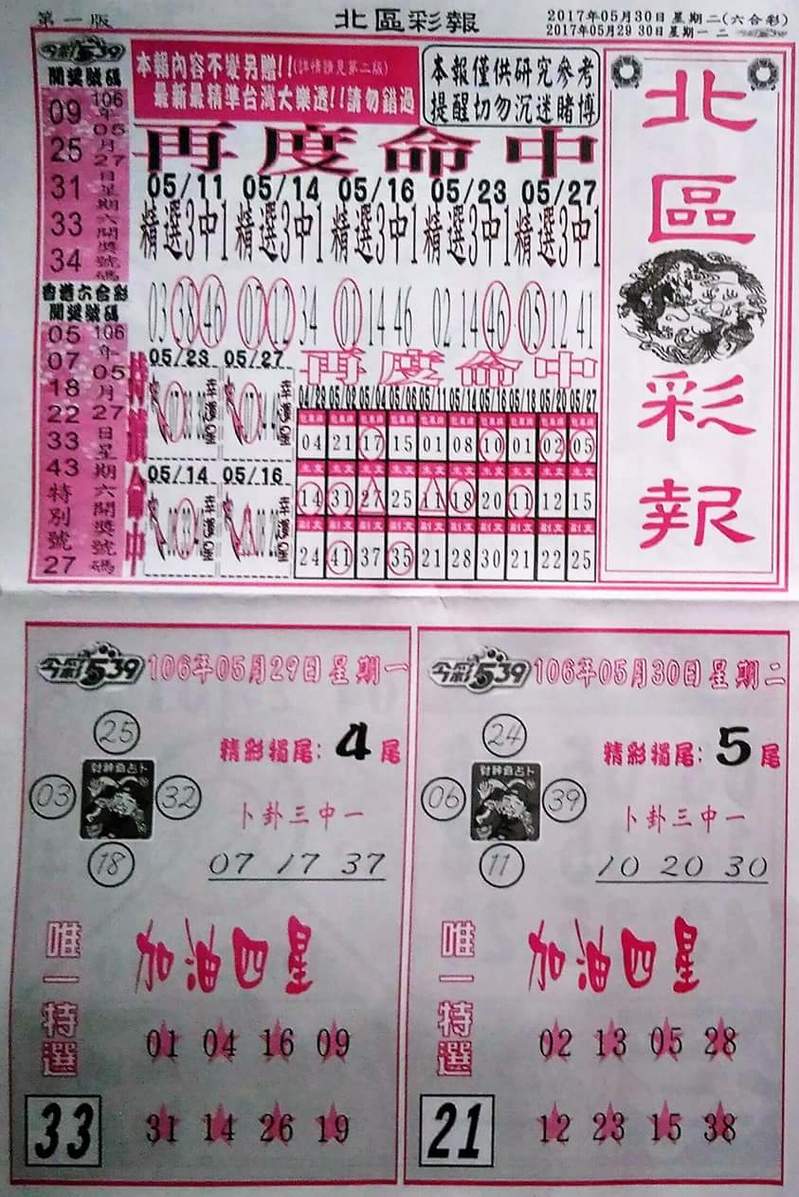 第一版
北區彩報
2017年05月30日星期二(六合彩)
2017年05月29 30日星期一 二
今彩539
開獎號碼
106年05月27日星期六開獎號碼
09
25
31
33
34
香港六合彩
開獎號碼
106年05月27日星期六開獎號碼
05
07
18
22
33
43
特別號
27
本報內容不變另贈!!(詳情請見第二版)
最新最精準台灣大樂透!!請勿錯過
本報僅供研究參考
提醒切勿沉迷賭博
再度命中
05/11 05/14 05/16 05/23 05/27
精選3中1 精選3中1 精選3中1 精選3中1 精選3中1
03 38 46 07 12 34 01 14 46 02 14 46 05 12 41
05/23 05/27
05/14 05/16
再度命中
04/29 05/02 05/04 05/06 05/11 05/14 05/16 05/18 05/20 05/27
04 21 17 15 01 08 10 01 02 05
主支 主支 主支 主支 主支 主支 主支 主支 主支 主支
14 31 27 25 11 18 20 11 12 15
副支 副支 副支 副支 副支 副支 副支 副支 副支 副支
24 41 37 35 21 28 30 21 22 25
北區彩報
今彩539 106年05月29日星期一
25
03
財神爺占卜
32
18
精彩獨尾: 4尾
卜卦三中一
07 17 37
唯一特選
33
加油四星
01 04 16 09
31 14 26 19
今彩539 106年05月30日星期二
24
06
財神爺占卜
39
11
精彩獨尾: 5尾
卜卦三中一
10 20 30
唯一特選
21
加油四星
02 13 05 28
12 23 15 38